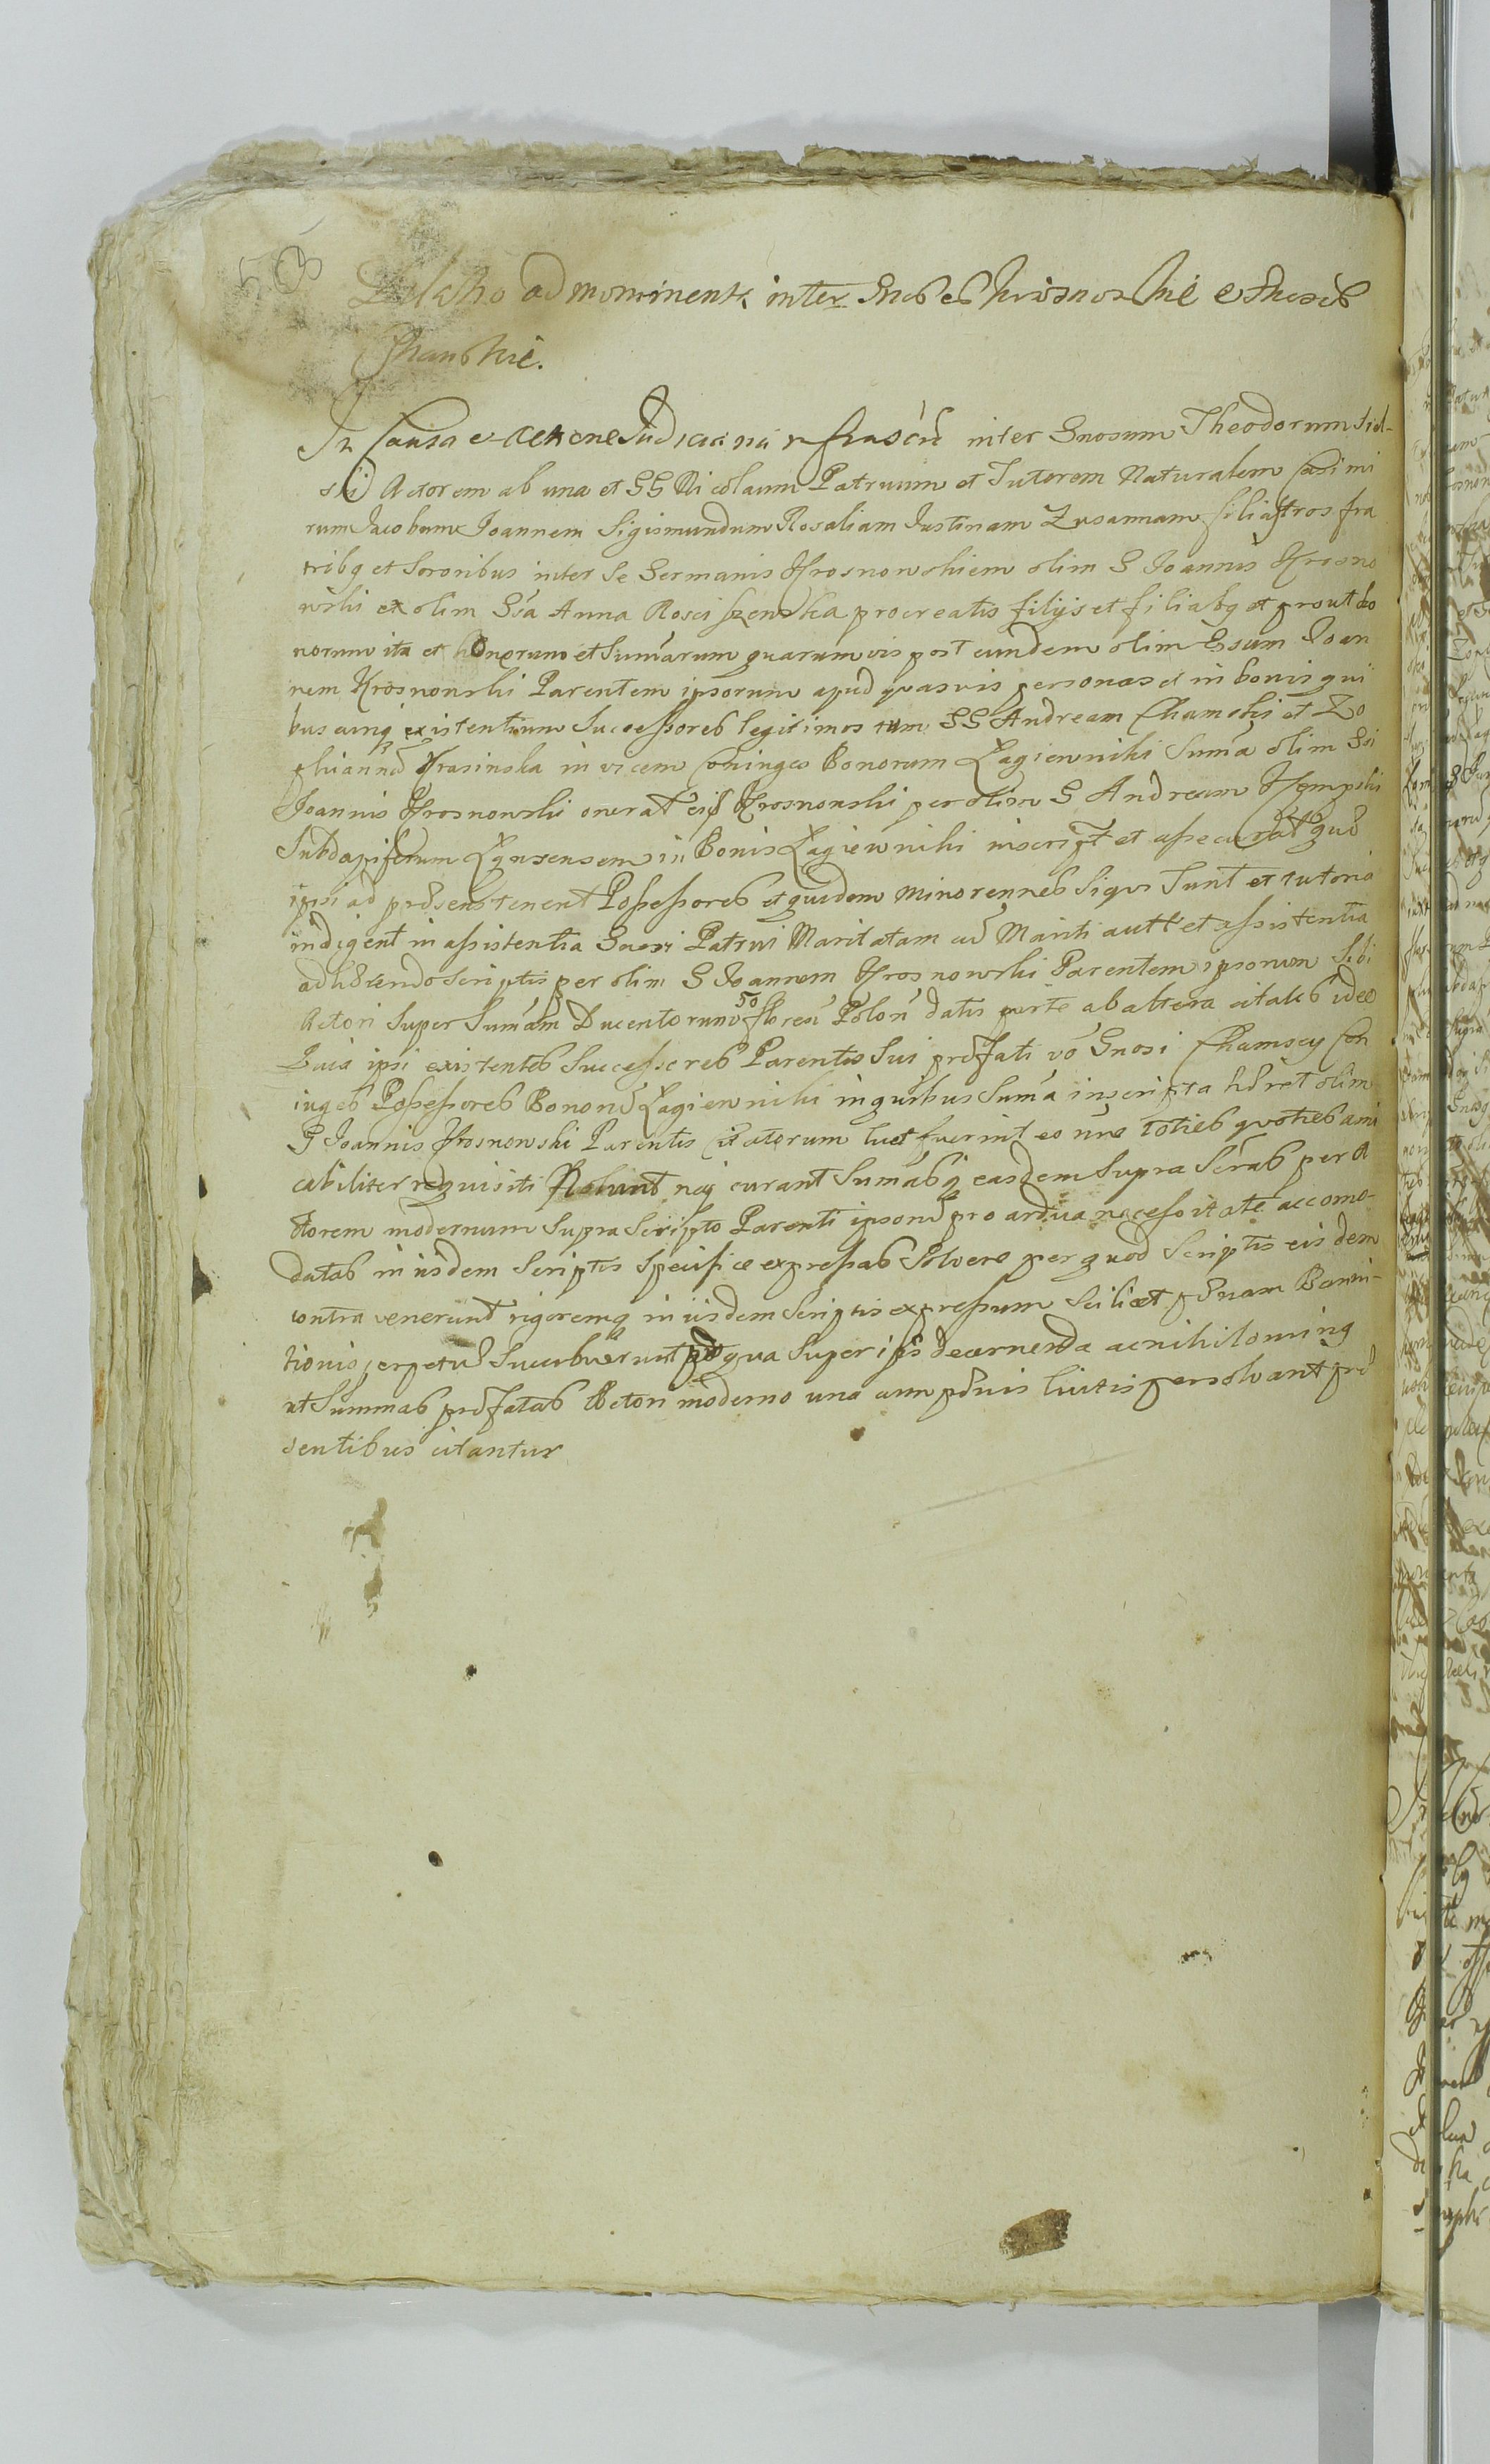 53
Dilatio ad mominenta inter Gnosos Krosnowskie et Gnosos
Chamskie.
In Causa et Actione Judiciaria infrascri inter Gnosum Theodorum Siel-
ski Actorem ab una et GG Nicolaum Patruum et Tutorem Naturalem Casimi
rum Jacobum Joannem Sigismundum Rosaliam Justinam Zusannam filiastros fra
tribq et Sororibus inter Se Germanis Krosnowskiem olim G Joannis Krosno
wski ex olim Gsa Anna Rosciszewska procreatis filijs et filiabq et prout bo
norum ita et Onerum et Sumarum quarumvis post eundem olim Gsum Joan
nem Krosnowski Parentem ipsorum apud quasvis personas et in bonis qui
buscunq existentium Successores legitimos tum GG Andream Chamski et Zo
phiannd Krasinska in vicem Coniuges Bonorum Lagiewniki Suma olim Gsi
Joannis Krosnowski onerat Krosnowski per olim G Andream Kempski
Subdapiferum in Bonis Lagiewniki inscript et assecurat qud
ipsi ad prdsens tenent Possessores et quidem Minorennes Siqui Sunt et tutoria
indigent in assistentia Gnosi Patrui Maritatam Mariti autt et assistentia
adhdrendo Scriptis per olim G Joannem Krosnowski Parentem ipsorum Sibi
Actori Super Sumam Ducentorum 50 floren Polon datis parte ab altera citates ideo
Quia ipsi existentes Successores Parentis Sui prdfati vo Gnosi Chamscy Con
iuges Possessores Bonord Lagiewniki in quibus Suma inscripta hdret olim
G Joannis Krosnowski Parentis Citatorum licet fuerint eo nne toties quoties ami
cabiliter requisiti Nolunt neq curant Sumasq easdem Supra Scras per A
ctorem modernum Supra Scripto Parenti ipsord pro ardua necessitate accomo-
datas in iisdem Scriptis Specifice expressas Solvere per quod Scriptis eisdem
contra venerunt rigoremq in iisdem Scriptis expressum Scilicet pdnam Banni-
tionis perpetud Sucubuerunt qua Super ipsis decernenda ac nihilominq
ut Summas prdfatas Actori moderno una cum pdnis luitis persolvant prd
sentibus citantur